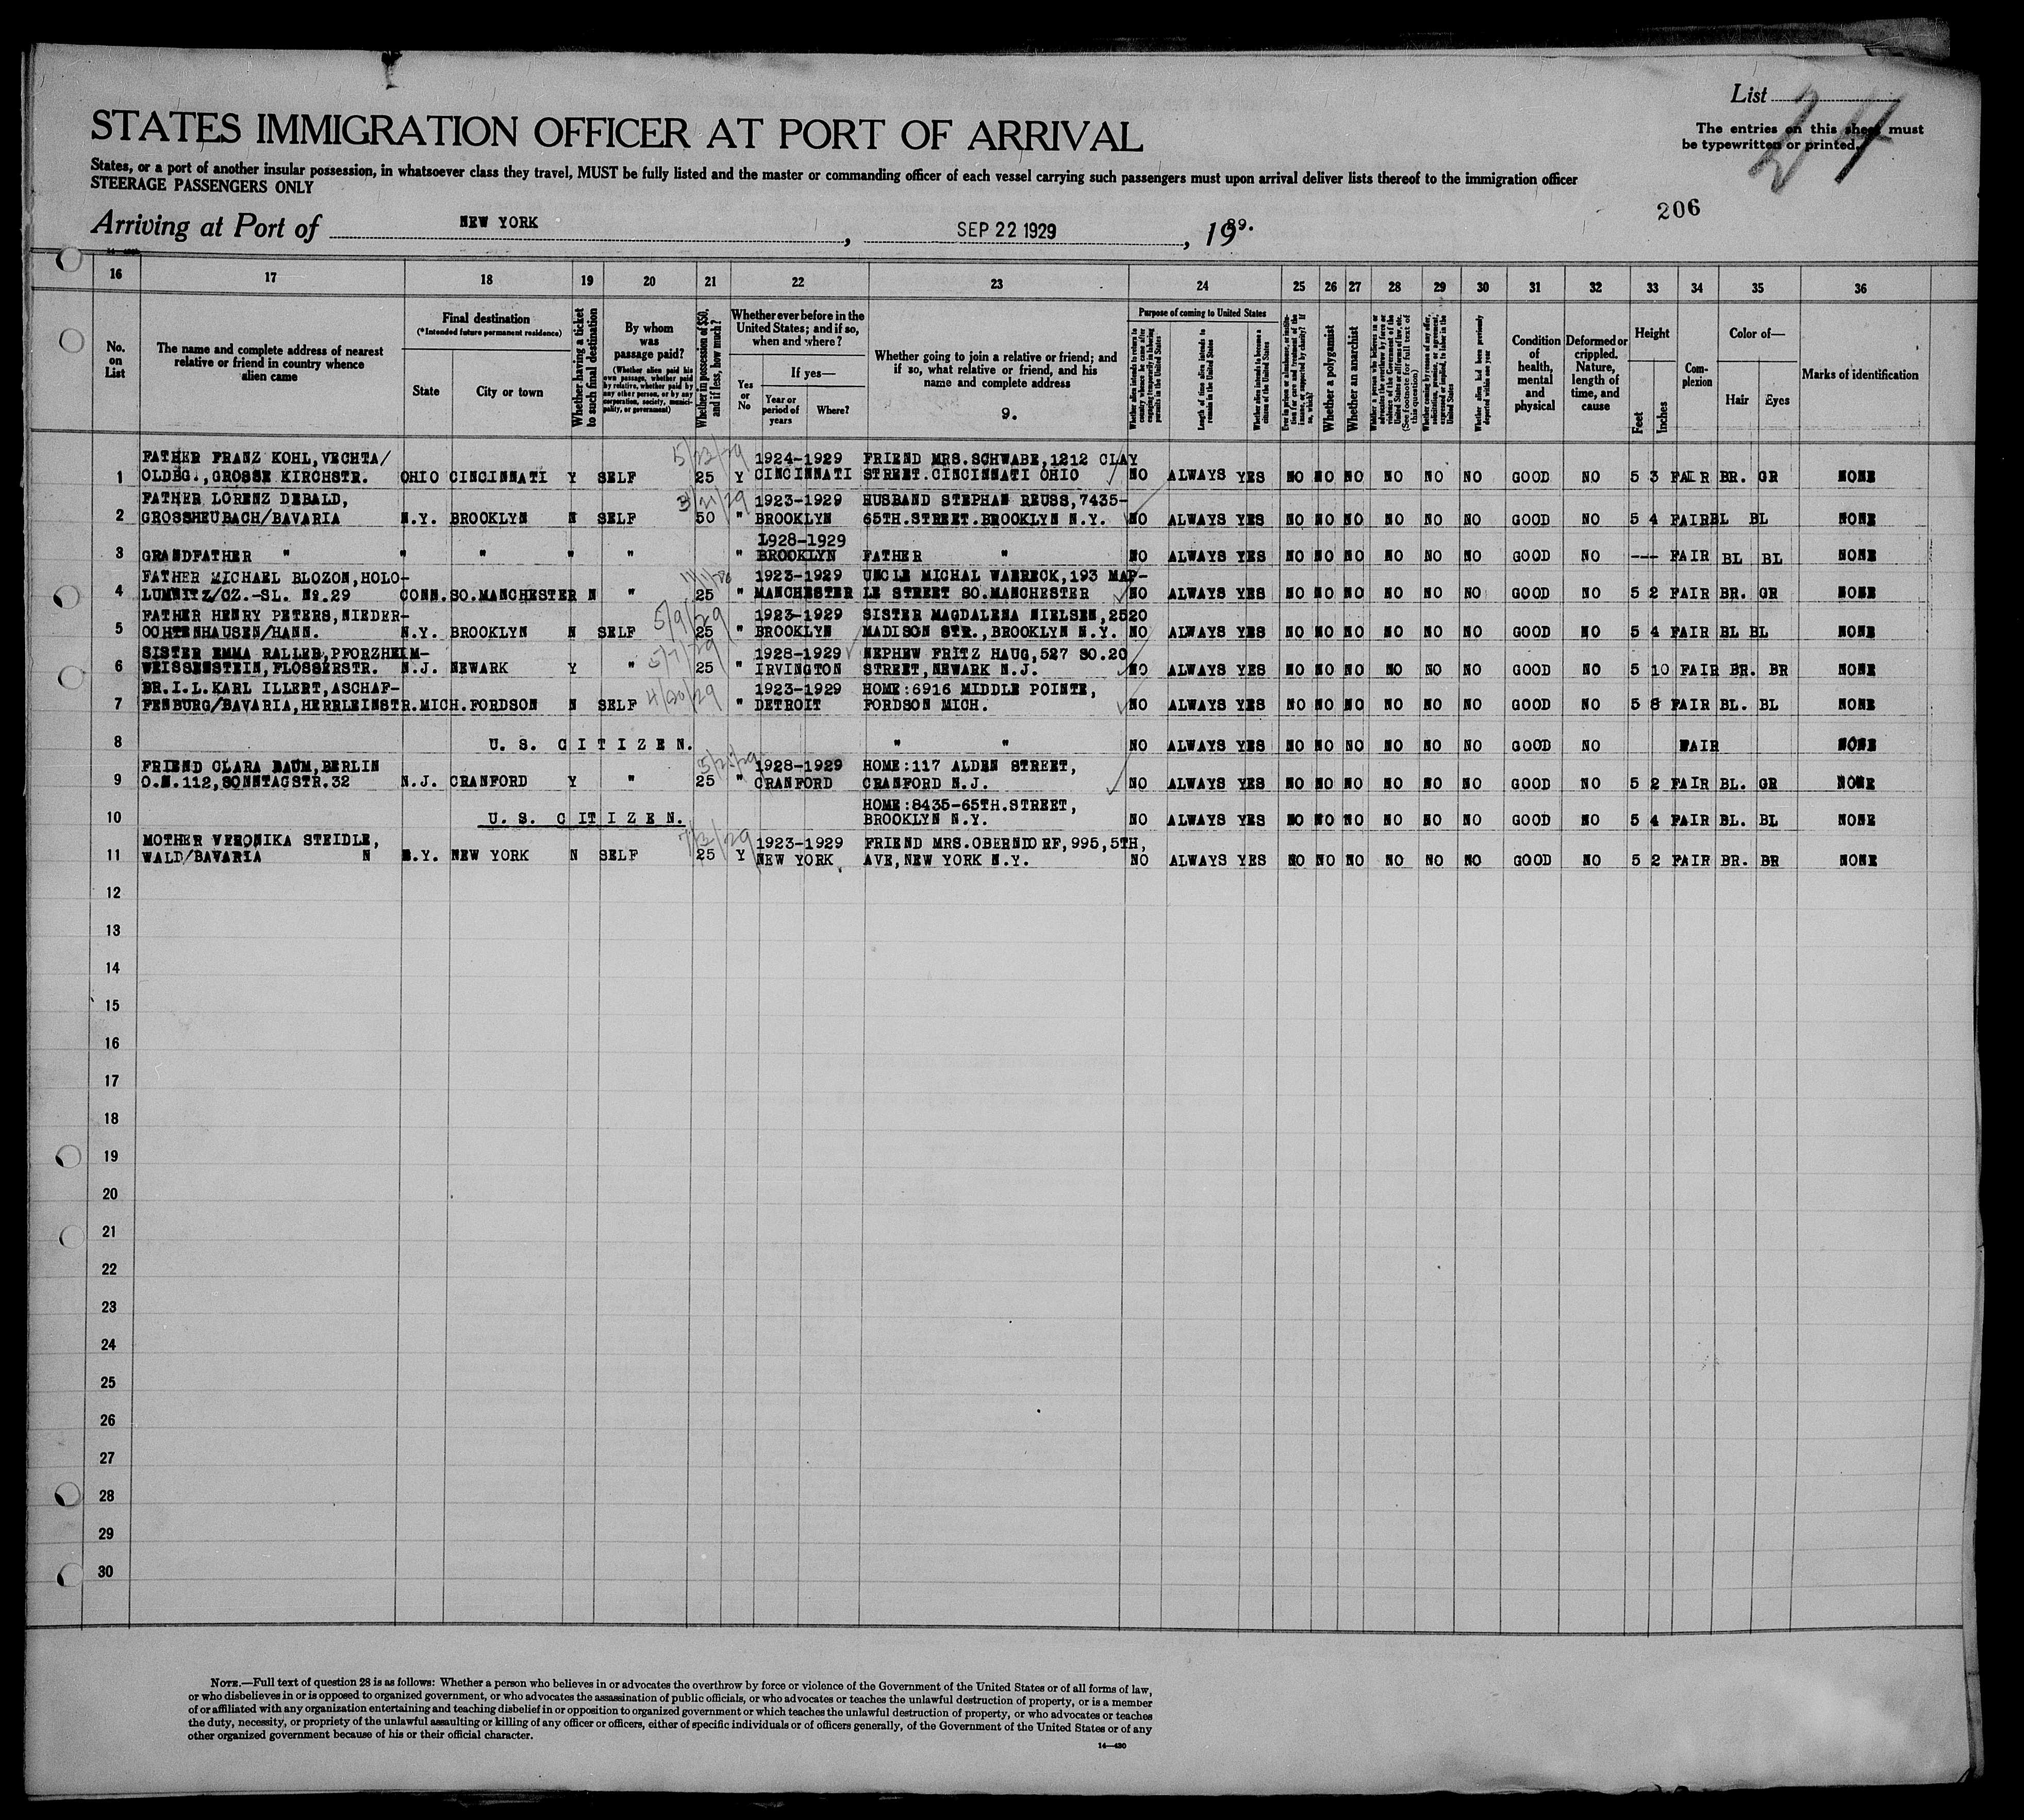 List
24
STATES IMMIGRATION OFFICER AT PORT OF ARRIVAL
The entries on this sheet must
be typewritten or printed.
States, or a port of another insular possession, in whatsoever class they travel, MUST be fully listed and the master or commanding officer of each vessel carrying such passengers must upon arrival deliver lists thereof to the immigration officer
STEERAGE PASSENGERS ONLY
206
Arriving at Port of NEW YORK, SEP 22 1929, 19
16 17 18 19 20 21 22 23 24 25 26 27 28 29 30 31 32 33 34 35 36
No. on List
The name and complete address of nearest
relative or friend in country whence
alien came
Final destination
(*Intended future permanent residence)
State
City or town
Whether having a ticket
to such final destination
By whom
was
passage paid?
(Whether alien paid his
own passage, whether paid
by relative, whether paid by
any other person, or by any
corporation, society, munici-
pality, or government)
Whether in possession of $50,
and if less, how much?
Whether ever before in the
United States; and if so,
when and where?
Yes
or
No
If yes—
Year or
period of
years
Where?
Whether going to join a relative or friend; and
if so, what relative or friend, and his
name and complete address
9.
Purpose of coming to United States
Length of time alien intends to
remain in the United States
Whether alien intends to become a
citizen of the United States
Whether a polygamist
Whether an anarchist
Whether alien had been previously
deported within one year
Condition
of
health,
mental
and
physical
Deformed or
crippled.
Nature,
length of
time, and
cause
Height
Feet
Inches
Com-
plexion
Color of—
Hair
Eyes
Marks of identification
5/23/29
FATHER FRANZ KOHL, VECHTA/ 1924-1929 FRIEND MRS.SCHWABE,1212 CLAY
1 OLDBG., GROSSE KIRCHSTR. OHIO CINCINNATI Y SELF 25 Y CINCINNATI STREET.CINCINNATI OHIO NO ALWAYS YES NO NO NO NO NO NO GOOD NO 5 3 FAIR BR. GR NONE
FATHER LORENZ DEBALD, 1923-1929 HUSBAND STEPHAN REUSS,7435-
2 GROSSHEUBACH/BAVARIA N.Y. BROOKLYN N SELF 50 " BROOKLYN 65TH.STREET.BROOKLYN N.Y. NO ALWAYS YES NO NO NO NO NO NO GOOD NO 5 4 FAIR BL BL NONE
1928-1929
3 GRANDFATHER " " " " " " BROOKLYN FATHER " NO ALWAYS YES NO NO NO NO NO NO GOOD NO --- FAIR BL BL NONE
FATHER MICHAEL BLOZON, HOLO- 1923-1929 UNCLE MICHAL WABRECK,193 MAP-
4 LUMNITZ/CZ.-SL. No.29 CONN. SO.MANCHESTER N " 25 " MANCHESTER LE STREET SO.MANCHESTER NO ALWAYS YES NO NO NO NO NO NO GOOD NO 5 2 FAIR BR. GR NONE
5/9/29
FATHER HENRY PETERS, NIEDER- 1923-1929 SISTER MAGDALENA NIELSEN,2520
5 OCHTENHAUSEN/HANN. N.Y. BROOKLYN N SELF 25 " BROOKLYN MADISON STR.,BROOKLYN N.Y. NO ALWAYS YES NO NO NO NO NO NO GOOD NO 5 4 FAIR BL BL NONE
5/7/29
SISTER EMMA RALLED, PFORZHEIM- 1928-1929 NEPHEW FRITZ HAUG,527 SO.20
6 WEISSENSTEIN, FLOSSERSTR. N.J. NEWARK Y " 25 " IRVINGTON STREET,NEWARK N.J. NO ALWAYS YES NO NO NO NO NO NO GOOD NO 5 10 FAIR BR. BR NONE
4/20/29
BR.I.L.KARL ILLERT, ASCHAF- 1923-1929 HOME:6916 MIDDLE POINTE,
7 FENBURG/BAVARIA, HERRLEINSTR. MICH. FORDSON N SELF " DETROIT FORDSON MICH. NO ALWAYS YES NO NO NO NO NO NO GOOD NO 5 8 FAIR BL. BL NONE
8 U. S. CITIZEN. " " NO ALWAYS YES NO NO NO NO NO NO GOOD NO FAIR NONE
FRIEND CLARA BAUM, BERLIN 1928-1929 HOME:117 ALDEN STREET,
9 O.N.112, SONNTAGSTR.32 N.J. CRANFORD Y " 25 " CRANFORD CRANFORD N.J. NO ALWAYS YES NO NO NO NO NO NO GOOD NO 5 2 FAIR BL. GR NONE
HOME:8435-65TH.STREET,
10 U. S. CITIZEN. BROOKLYN N.Y. NO ALWAYS YES NO NO NO NO NO NO GOOD NO 5 4 FAIR BL. BL NONE
MOTHER VERONIKA STEIDLE, 1923-1929 FRIEND MRS.OBERNDORF,995,5TH,
11 WALD/BAVARIA N N.Y. NEW YORK N SELF 25 Y NEW YORK AVE,NEW YORK N.Y. NO ALWAYS YES NO NO NO NO NO NO GOOD NO 5 2 FAIR BR. BR NONE
12
13
14
15
16
17
18
19
20
21
22
23
24
25
26
27
28
29
30
NOTE.—Full text of question 28 is as follows: Whether a person who believes in or advocates the overthrow by force or violence of the Government of the United States or of all forms of law,
or who disbelieves in or is opposed to organized government, or who advocates the assassination of public officials, or who advocates or teaches the unlawful destruction of property, or is a member
of or affiliated with any organization entertaining and teaching disbelief in or opposition to organized government or which teaches the unlawful destruction of property, or who advocates or teaches
the duty, necessity, or propriety of the unlawful assaulting or killing of any officer or officers, either of specific individuals or of officers generally, of the Government of the United States or of any
other organized government because of his or their official character.
14—430